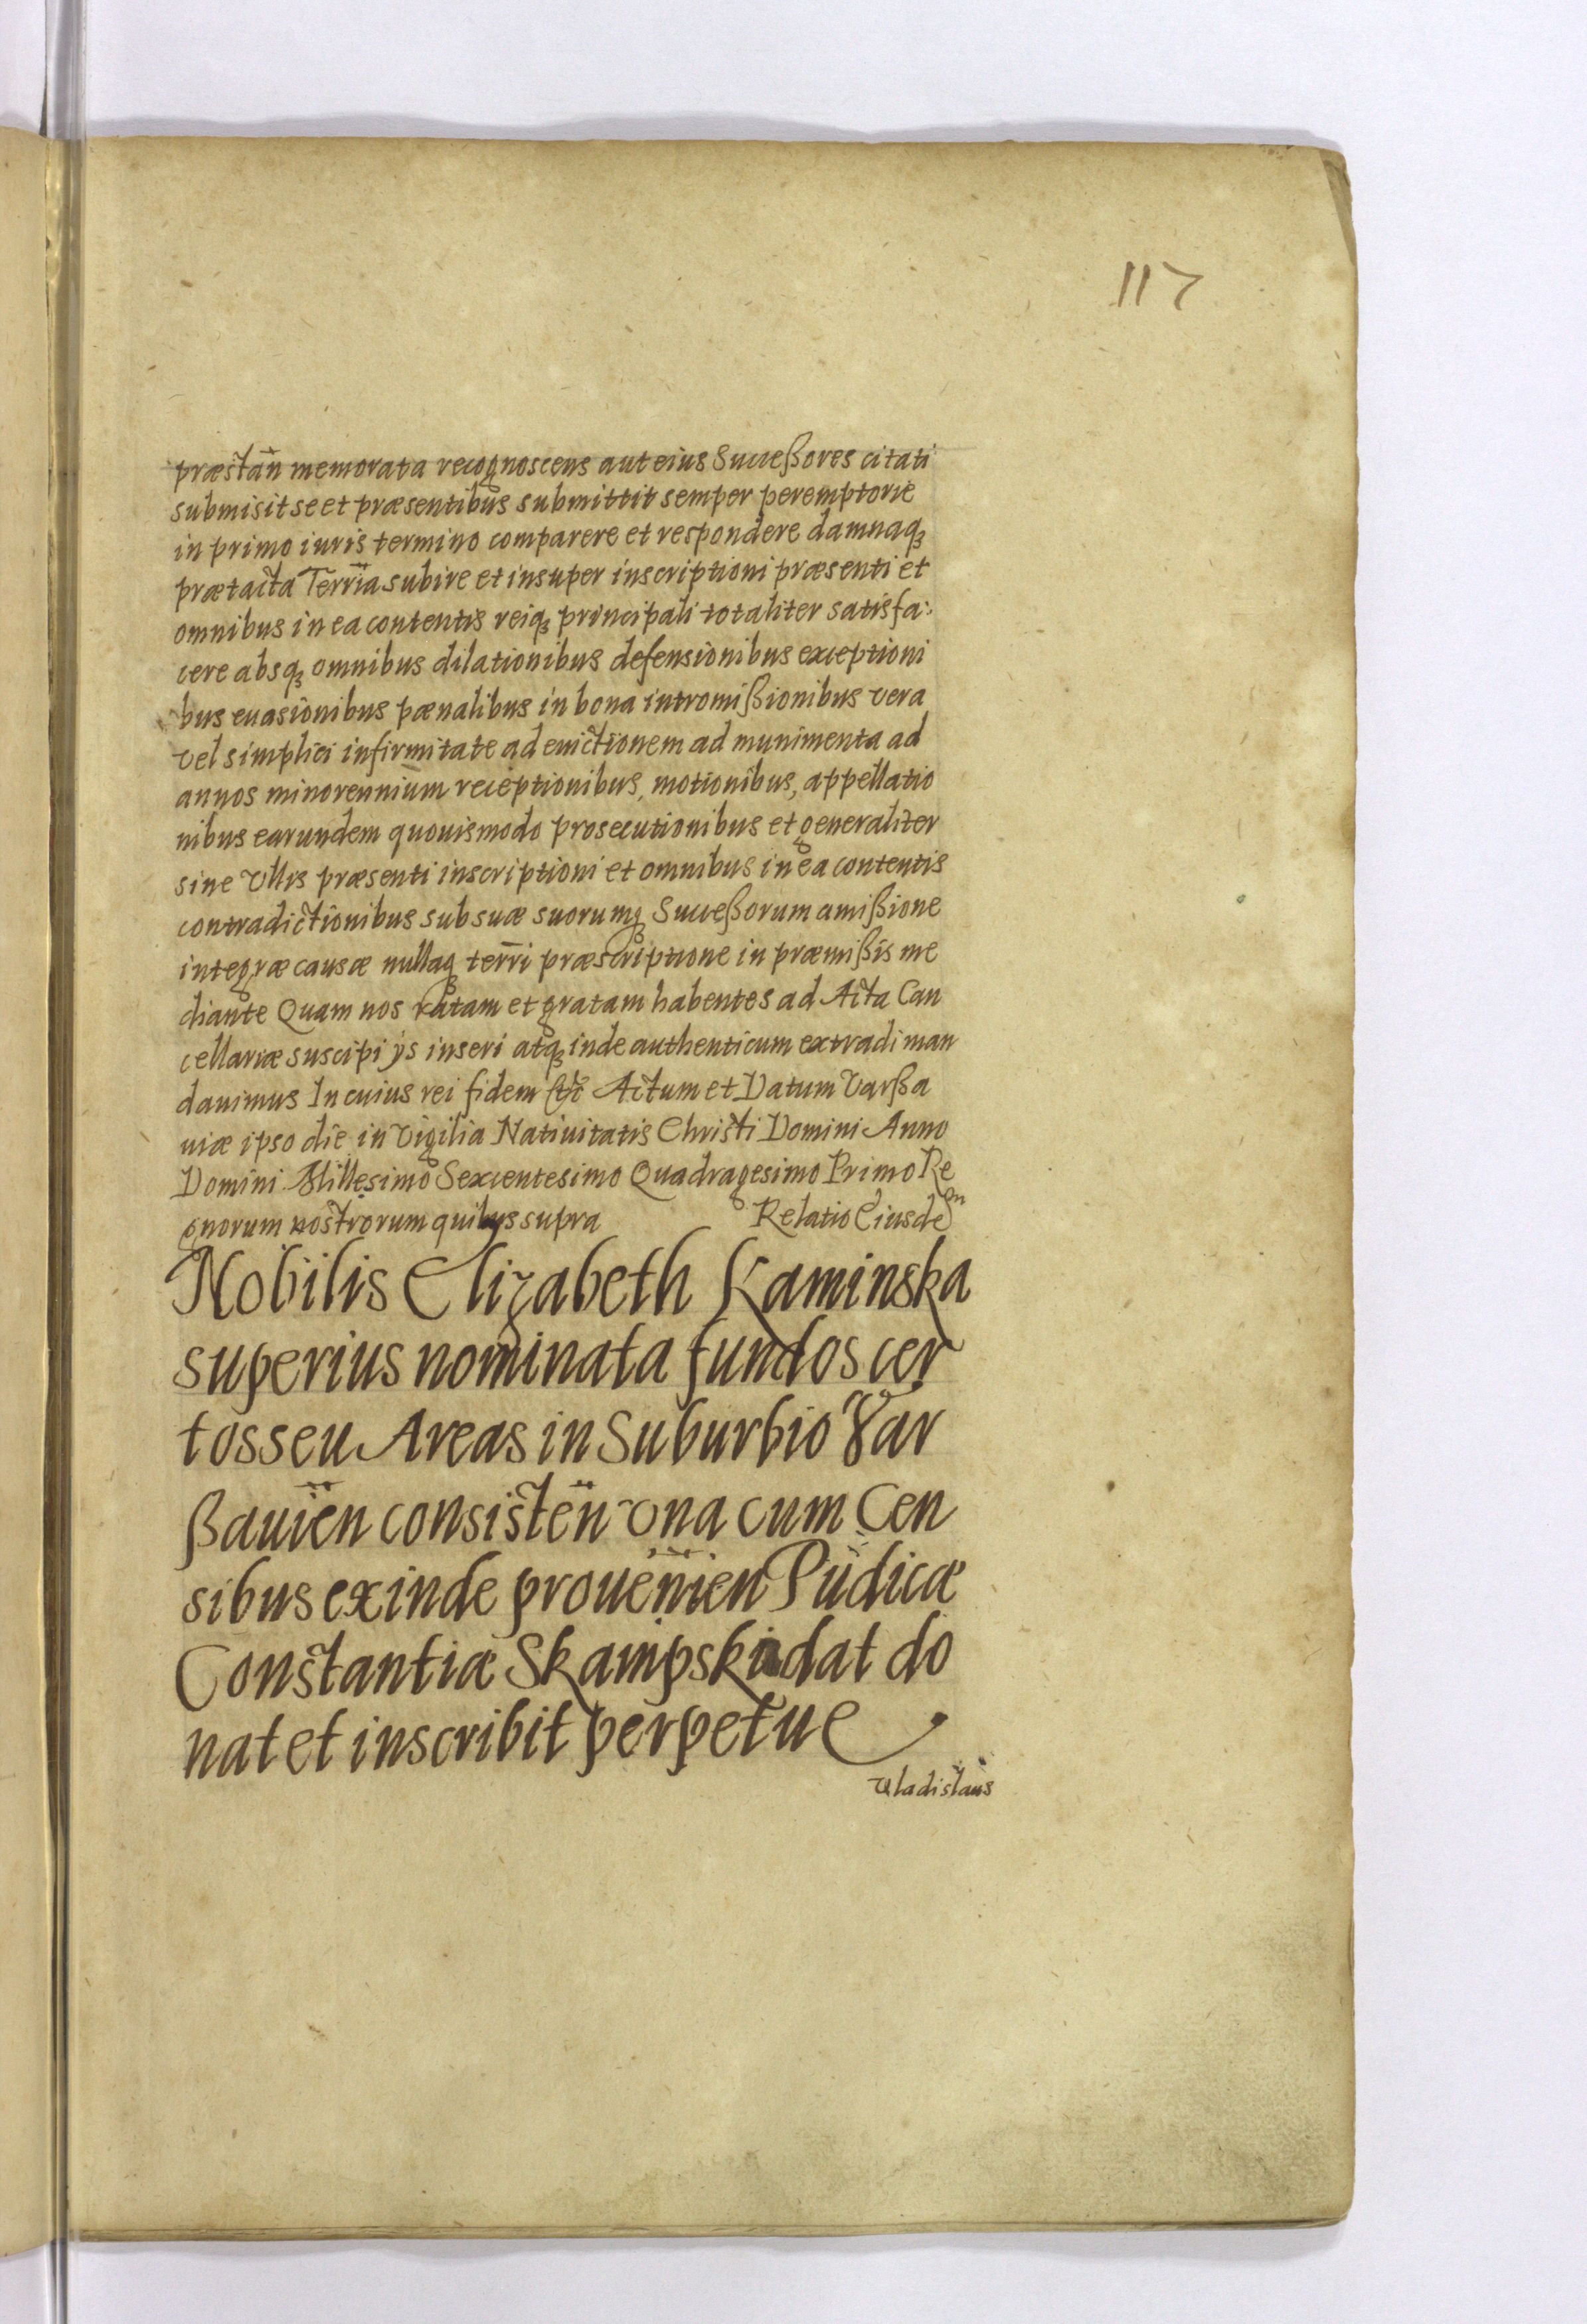 117
præstan̄ memorata recognoscens aut eius Succeßores citati
submisit se et præsentibus submittit semper peremptorie
in primo iuris termino comparere et respondere damnaqꝫ
prætacta Terr̄ia subire et insuper inscriptioni præsenti et
omnibus in ea contentis reiqꝫ principali totaliter satisfa:
cere absqꝫ omnibus dilationibus defensionibus exceptioni
bus euasionibus pænalibus in bona intromißionibus vera
vel simplici infirmitate ad euictionem ad munimenta ad
annos minorennium receptionibus, motionibus, appellatio
nibus earundem quouismodo prosecutionibus et generaliter
sine vllis præsenti inscriptioni et omnibus in ea contentis
contradictionibus sub suæ suorumqꝫ Succeßorum amißione
integræ causæ nullaqꝫ terr̄i præscriptione in præmißis me
diante Quam nos ratam et gratam habentes ad Acta Can
cellariæ suscipi ijs inseri atqꝫ inde authenticum extradi man
dauimus In cuius rei fidem etc̄ Actum et Datum Varßa
uiæ ipso die in Vigilia Natiuitatis Christi Domini Anno
Domini Millesimo Sexcentesimo Quadragesimo Primo Re
gnorum nostrorum quibus supra Relatio Eiusdem
Nobilis Elizabeth Kaminska
superius nominata fundos cer
tos seu Areas in Suburbio Var
ßauien̄ consisten̄ vna cum Cen
sibus exinde prouenien̄ Pudicæ
Constantiæ Skampski dat do
nat et inscribit perpetue
Vladislaus